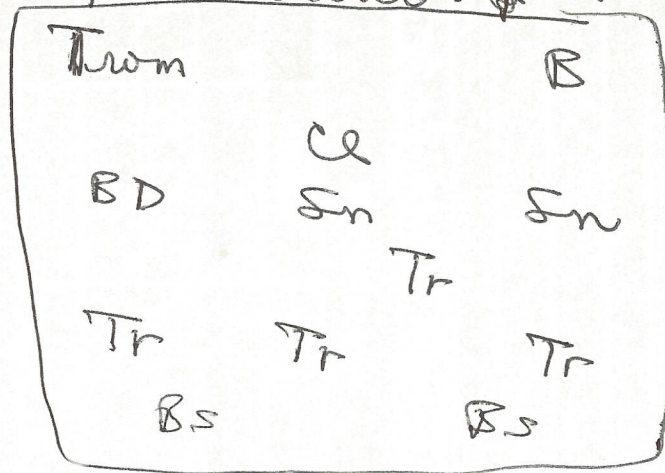 Trom B
Cl
BD Sn Sn
Tr
Tr Tr Tr
Bs Bs